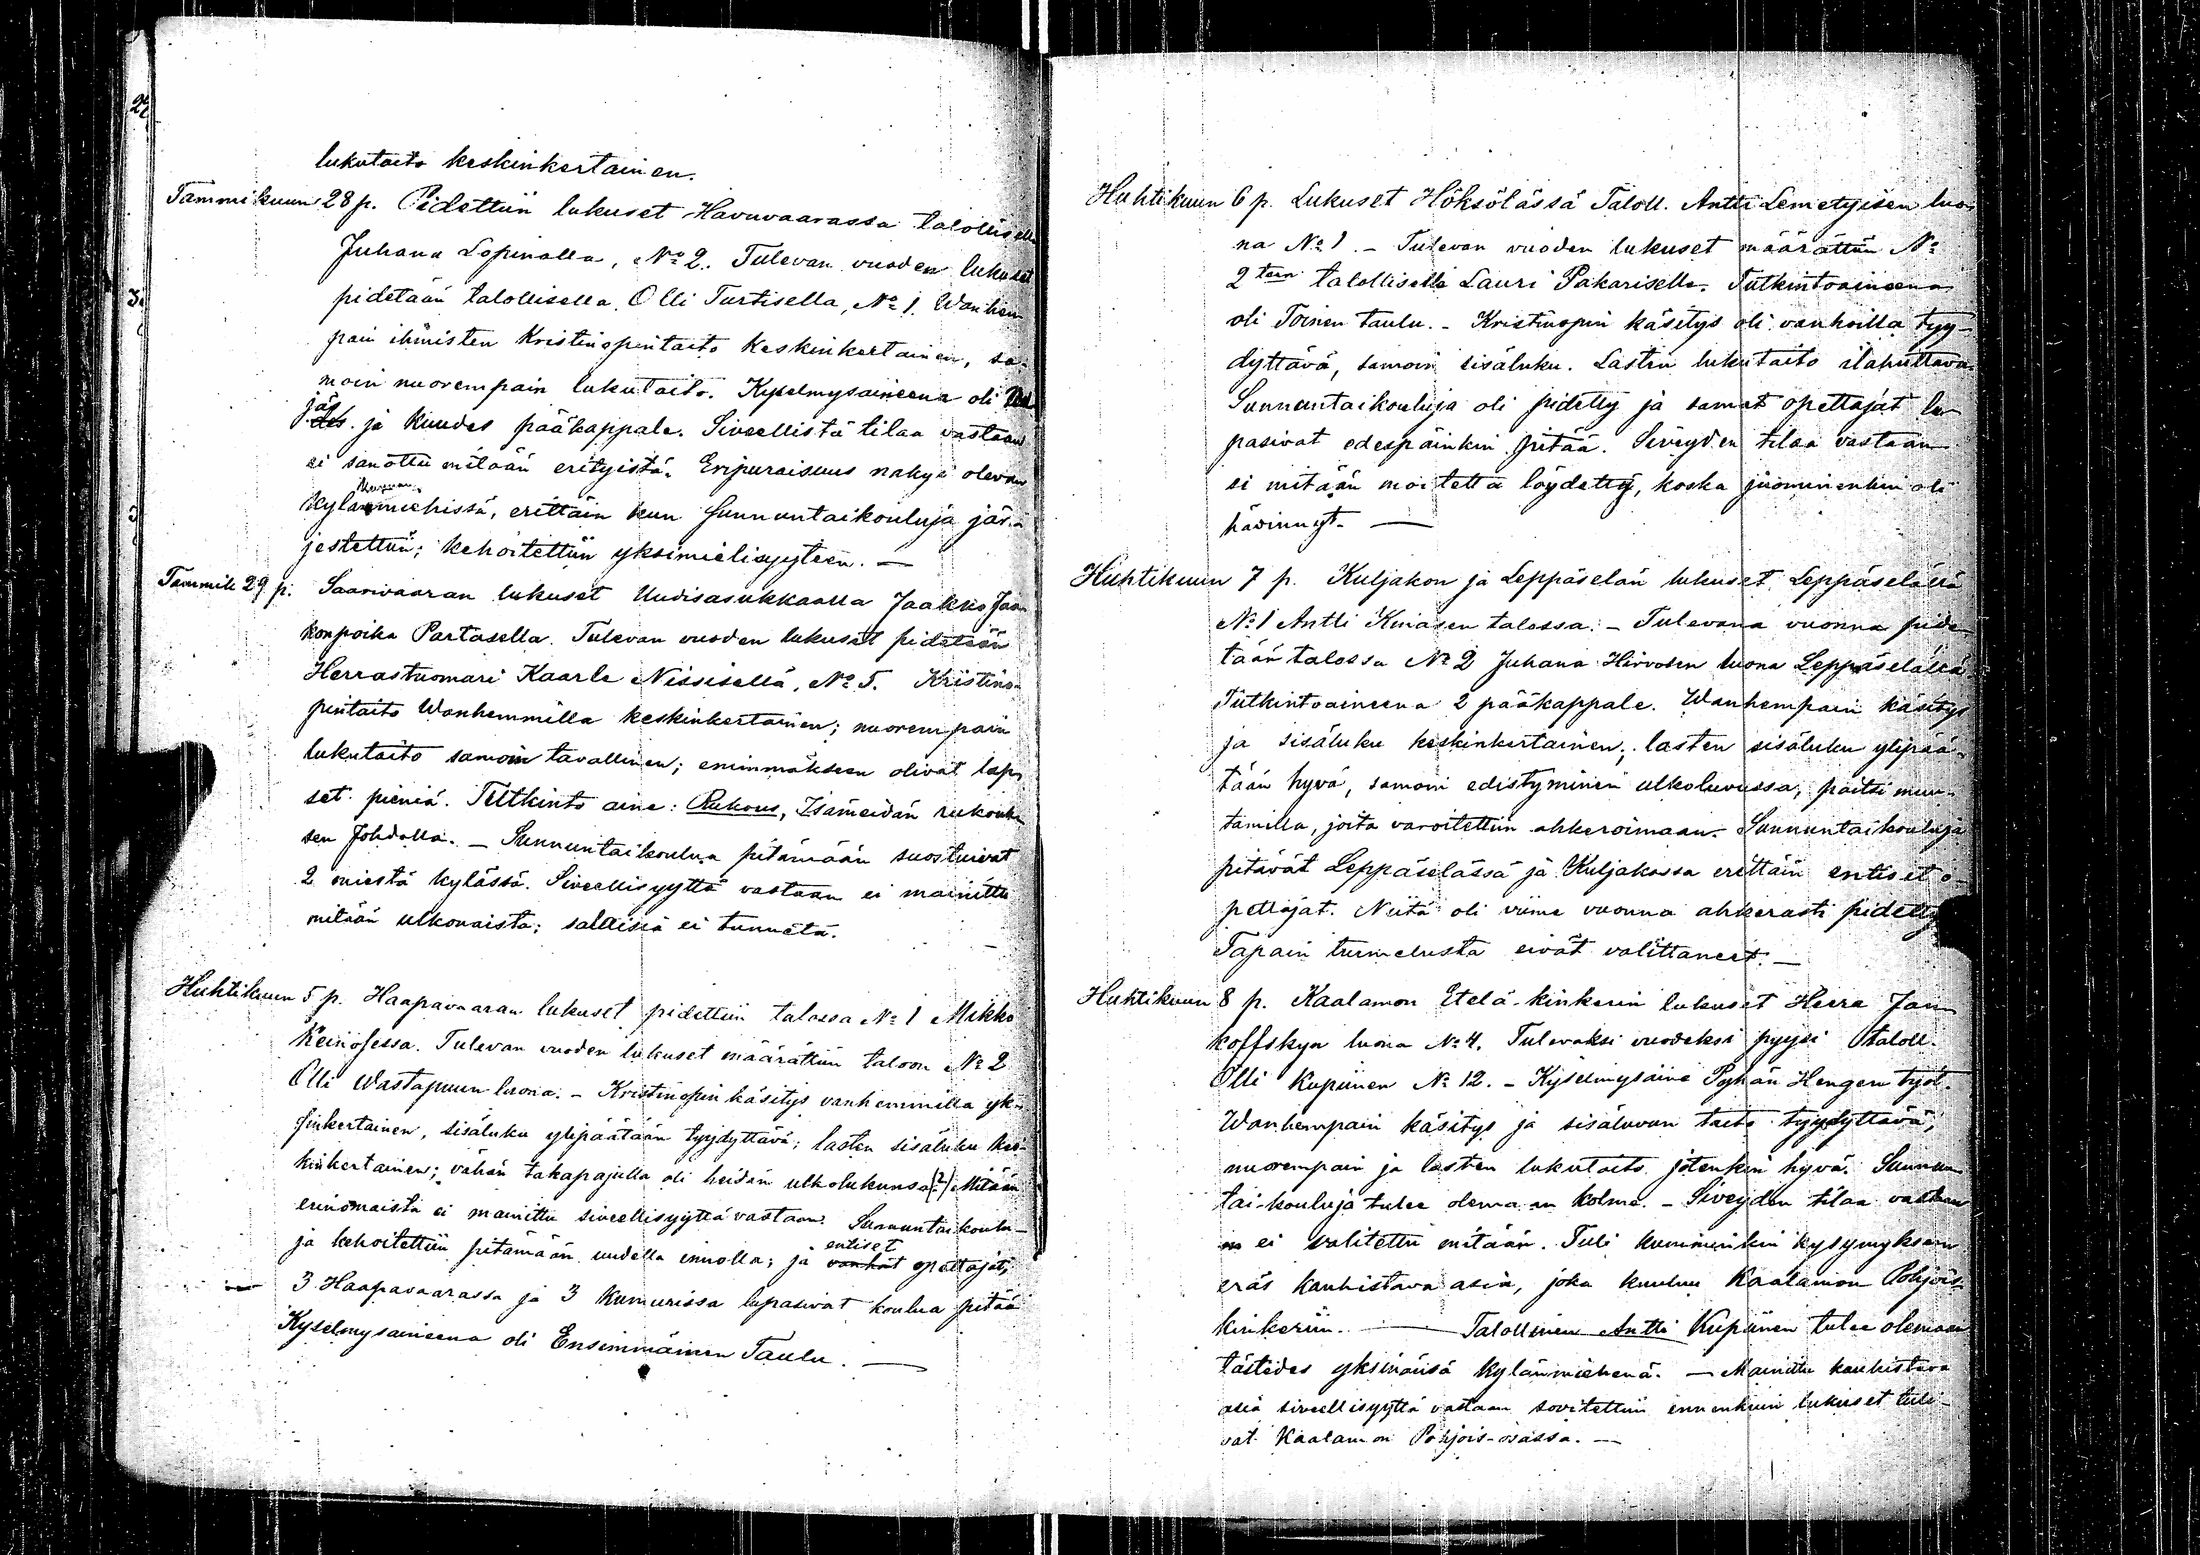 lukutaito keskinkertainen.
Tammikuun 28 p. Pidettiin lukuset Havuvaarassa talollisella
Juhana Lopinalla, No 2. Tulevan vuoden lukuset
pidetään talollisella Olli Turtisella, No 1. Wanhem-
pain ihmisten Kristinopintaito keskinkertainen, sa-
moin nuorempain lukutaito. Kyselmysaineena oli
jäs ja kuudes pääkappale. Siveellistä tilaa vastaan
ei sanottu mitään erityistä. Eripuraisuus näkyi olevan
kylänmiehissä, erittäin kun sunnuntaikouluja jär-
jestettiin; kehoitettiin yksimielisyyteen. —
Tammik 29 p. Saarivaaran lukuset Uudisasukkaalla Jaakko Jaa-
konpoika Partasella. Tulevan vuoden lukuset pidetään
Herrastuomari Kaarle Nissisellä, No 5. Kristino-
pintaito Wanhemmilla keskinkertainen; nuorempain
lukutaito samoin tavallinen; enimmäkseen olivat lap-
set pieniä. Tutkinto aine: Rukous, Isämeidän rukouk-
sen Johdolla. — Sunnuntaikoulua pitämään suostuivat
2 miestä kylässä. Siveellisyyttä vastaan ei mainittu
mitään ulkonaista; salaisia ei tunneta.
Huhtikuun 5 p. Haapavaaran lukuset pidettiin talossa No 1 Mikko
Keinösessa. Tulevan vuoden lukuset määrättiin taloon No 2
Olli Wastapuun luona. - Kristinopin käsitys vanhemmilla yk-
sinkertainen, sisäluku ylipäätään tyydyttävä; lasten sisäluku kes-
kinkertainen; vähän takapajulla oli heidän ulkolukunsa (?) Mitään
erinomaista ei mainittu siveellisyyttä vastaan. Sunnuntaikoulu-
ja kehoitettiin pitämään uudella innolla; ja vanhat entiset opettajat,
3 Haapavaarassa ja 3 Kumurissa lupasivat koulua pitää
Kyselmysaineena oli Ensimmäinen Taulu. —
Huhtikuun 6 p. Lukuset Höksölässä Taloll. Antti Lemetyisen luo-
na No 1. - Tulevan vuoden lukuset määrättiin No
2 teen talolliselle Lauri Pakariselle. Tutkintoaineena
oli Toinen taulu. - Kristinopin käsitys oli vanhoilla tyy-
dyttävä, samoin sisäluku. Lasten lukutaito ilahuttava.
Sunnuntaikouluja oli pidetty ja samat opettajat lu-
pasivat edespäinkin pitää. Siveyden tilaa vastaan
ei mitään moitetta löydetty, koska juominenkin oli
hävinnyt. —
Huhtikuun 7 p. Kuljakon ja Leppäselän lukuset Leppäselässä
No 1 Antti Kiiasen talossa. - Tulevana vuonna pide-
tään talossa No 2 Juhana Hirvosen luona Leppäselässä
Tutkintoaineena 2 pääkappale. Wanhempain käsitys
ja sisäluku keskinkertainen; lasten sisäluku ylipää-
tään hyvä, samoin edistyminen ulkoluvussa, paitsi muu-
tamilla, joita varoitettiin ahkeroimaan. - Sunnuntaikouluja
pitävät Leppäselässä ja Kuljakossa erittäin entiset o-
pettajat. Niitä oli viime vuonna ahkerasti pidetty
Tapain turmelusta eivät valittaneet. —
Huhtikuun 8 p. Kaalamon Etelä-kinkerin lukuset Herra Jan-
koffskyn luona No 4. Tulevaksi vuodeksi pyysi taloll.
Olli Kupiinen No 12. - Kyselmysaine Pyhän Hengen työt.
Wanhempain käsitys ja sisäluvun taito tyydyttävä;
nuorempain ja lasten lukutaito jotenkin hyvä. Sunnun-
tai-kouluja tulee olemaan kolme. - Siveyden tilaa vastaan
ei valitettu mitään. Tuli kumminkin kysymykseen
eräs kauhistava asia, joka kuuluu Kaalamon Pohjois-
kinkeriin. — Talollinen Antti Kupiinen tulee olemaan
tästedes yksinänsä kylänmiehenä. — Mainittu kauhistava
asia siveellisyyttä vastaan sovitettiin ennenkuin lukuset tuli-
vat Kaalamon Pohjois-osassa. —